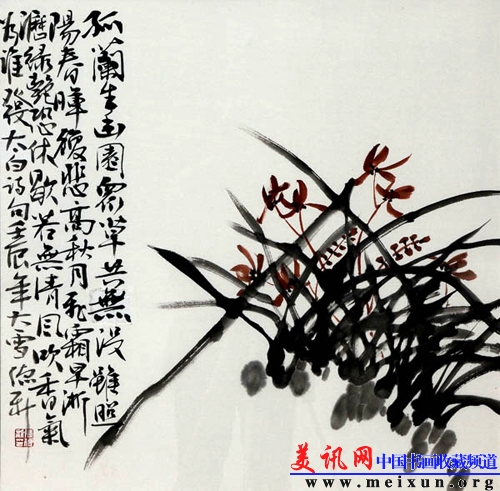 孤蘭生幽園眾草共蕪没雖照
陽春暉復悲高秋月飛霜早淅
瀝绿艷恐休歇若無清風吹香氣
為誰發太白詩句壬辰年大雪
美讯网 中国书画收藏频道
www.meixun.org